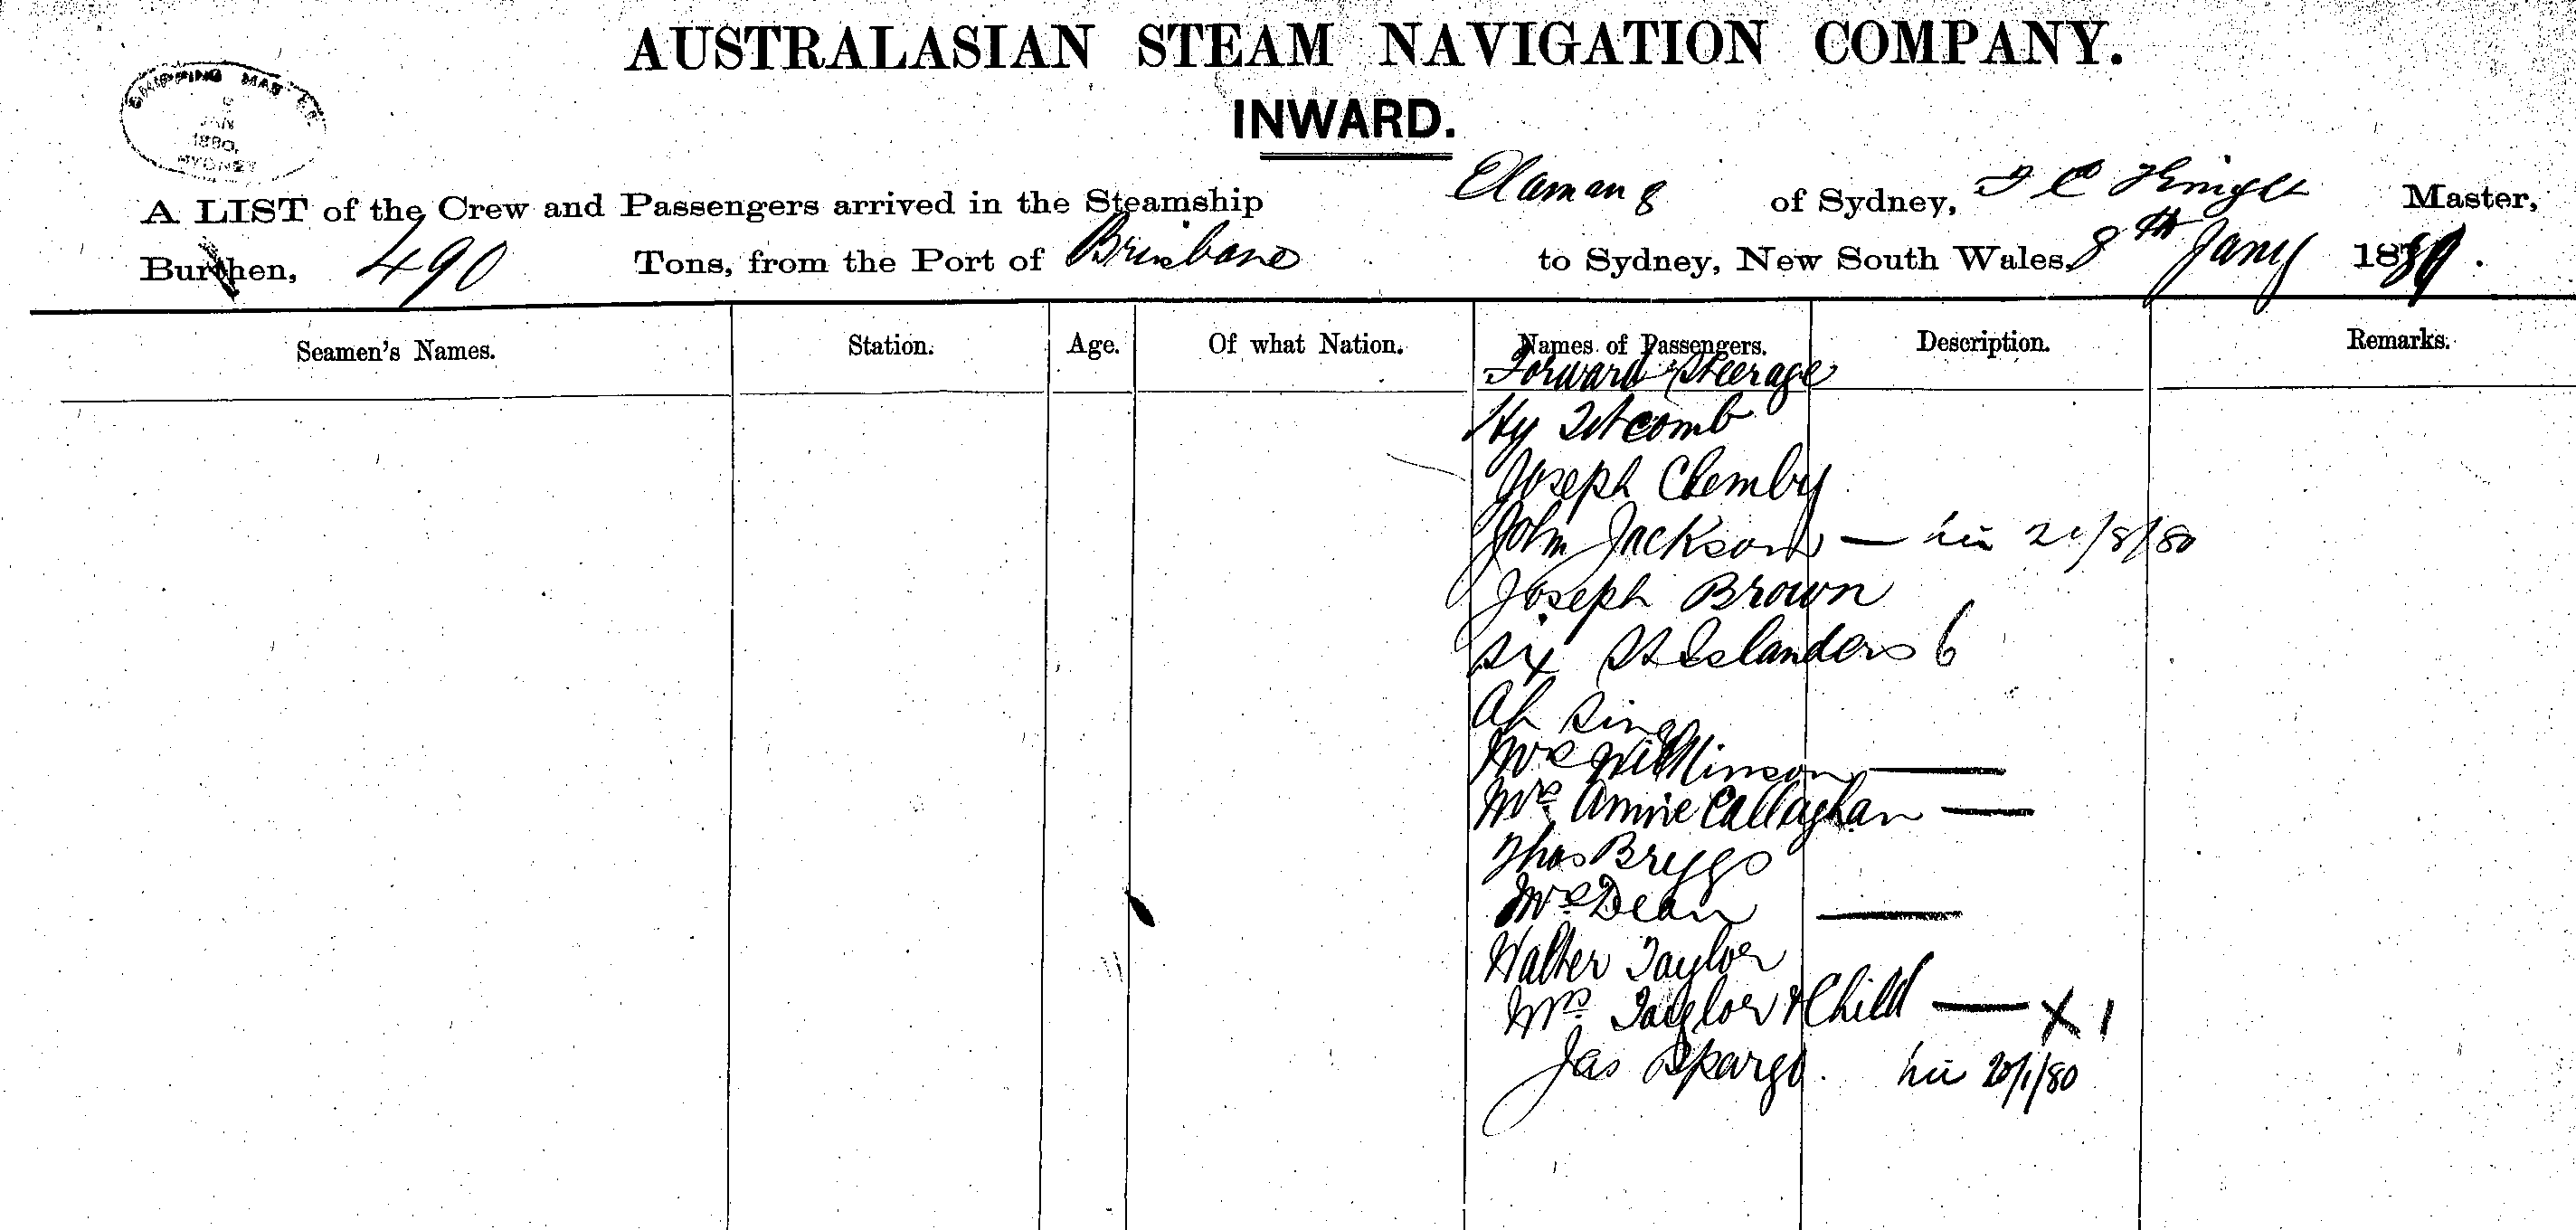 AUSTRALASIAN STEAM NAVIGATION COMPANY.
INWARD.
SHIPPING MASTER
JAN
1880,
SYDNEY
A LIST of the Crew and Passengers arrived in the Steamship Elamang of Sydney, Master,
Burthen, 490 Tons, from the Port of Brisbane to Sydney, New South Wales, 8th Jany 1880.
Seamen's Names. Station. Age. Of what Nation. Names of Passengers. Description. Remarks.
Forward Steerage
Hy Titcomb
Joseph Clemby
John Jackson — 80
Joseph Brown
Six Islanders 6
Ah Sing
Mrs Wilkinson —
Mrs Annie Callaghan —
Thos Briggs
Mrs Dean —
Walter Taylor
Mrs Taylor & Child — X 1
Jas Spargo. 20/1/80